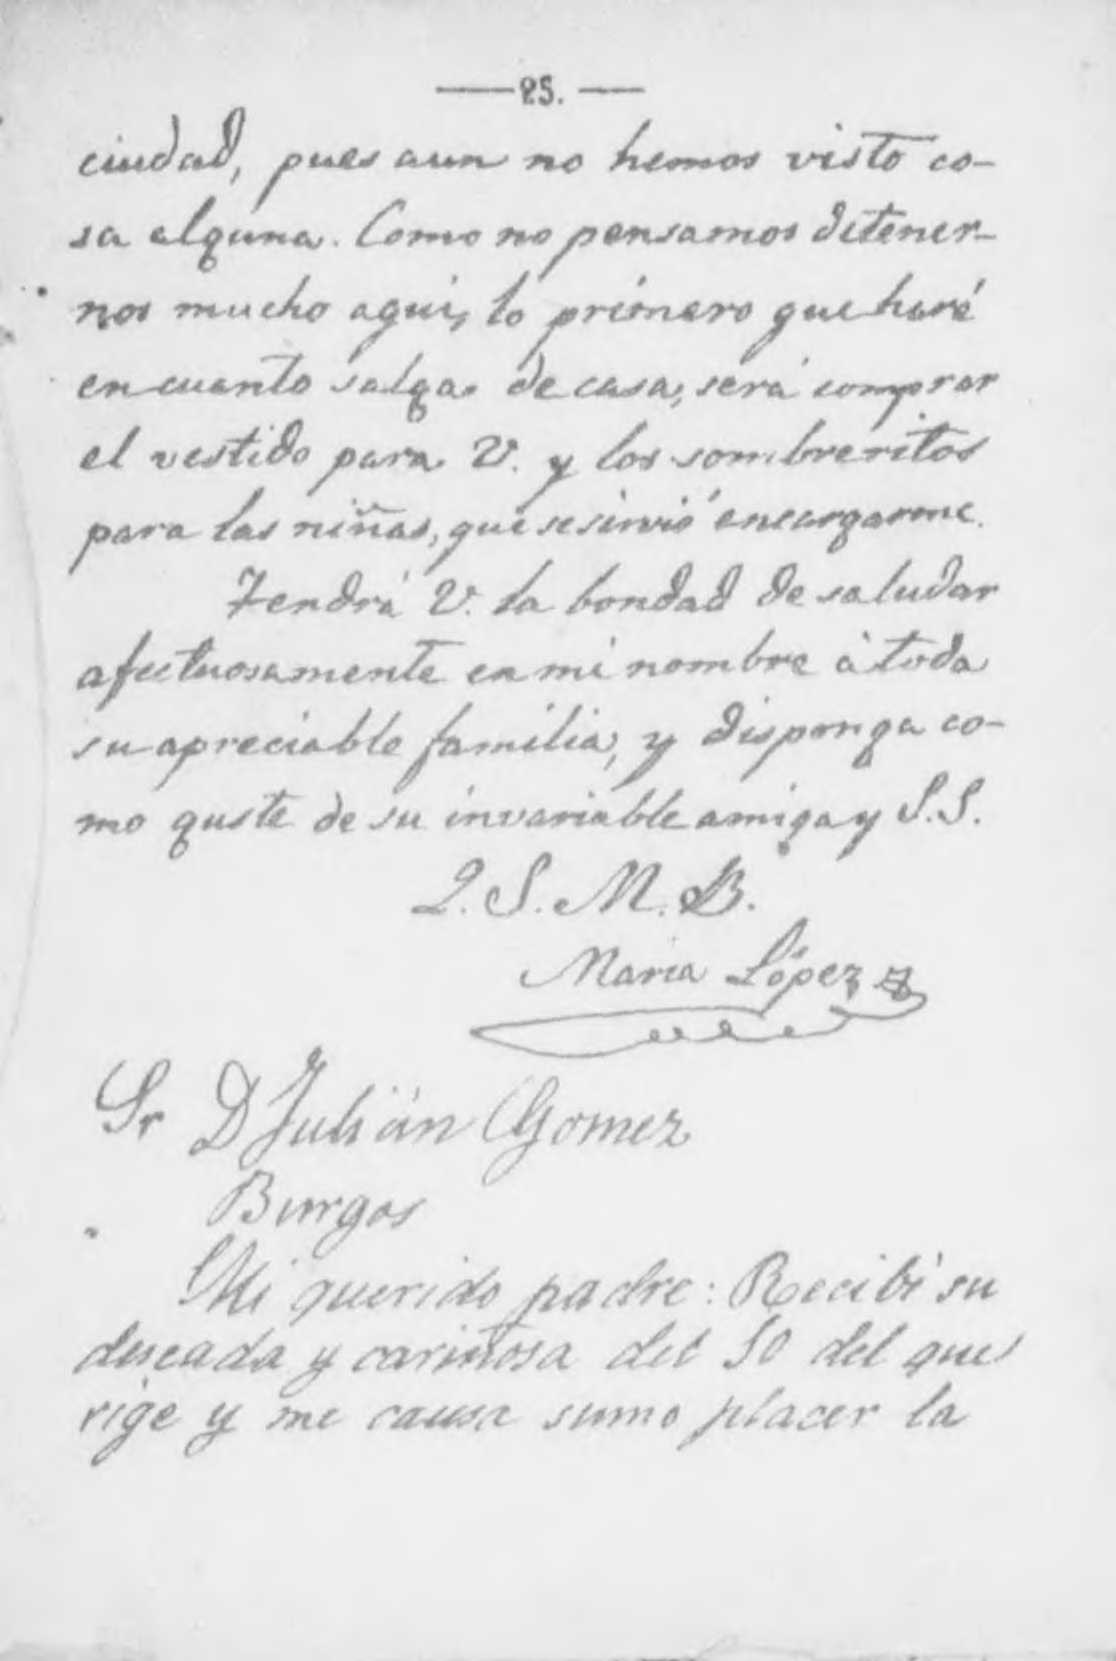 — 25. —
ciudad, pues aun no hemos visto co-
sa alguna. Como no pensamos detener-
nos mucho aquí, lo primero que haré
en cuanto salga de casa, será comprar
el vestido para V. y los sombreritos
para las niñas, que se sirvió encargarme.
Tendrá V. la bondad de saludar
afectuosamente en mi nombre à toda
su apreciable familia, y disponga co-
mo guste de su invariable amiga y S.S.
Q. S. M. B.
Maria López
Sr D Julián Gomez
Burgos
Mi querido padre: Recibí su
deseada y cariñosa del 10 del que
rige y me causa sumo placer la